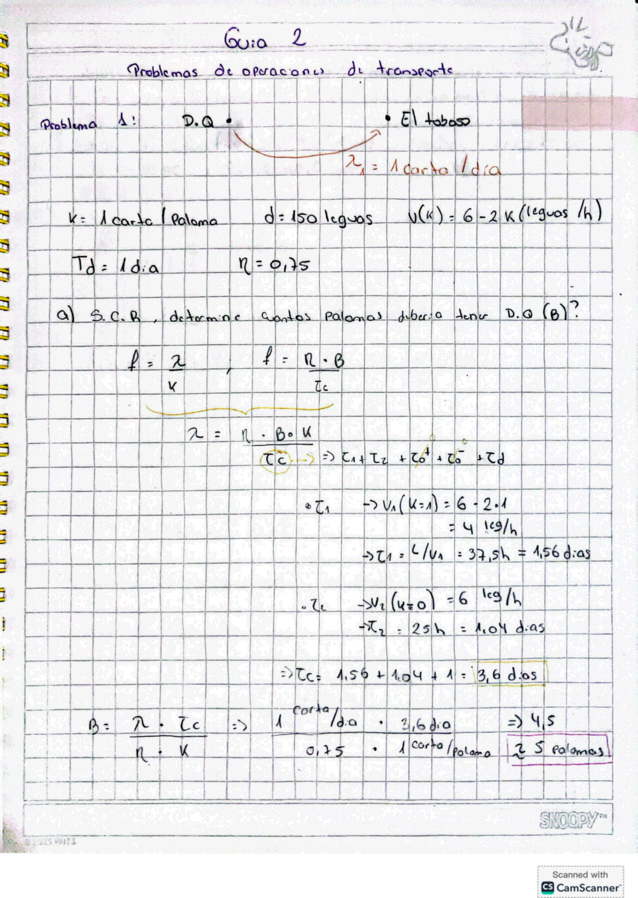 Guia 2
Problemas de operaciones de transporte
Problema 1: D.Q • • El toboso
λ₁ = 1 carta / día
K = 1 carta / Paloma d = 150 leguas v(K) = 6 - 2K (leguas /h)
Td = 1 dia η = 0,75
a) S.C.B, determine cuantas Palomas deberia tener D.Q (B)?
f = λ/K , f = η · B/τc
λ = η · B · K/τc => τ1 + τ2 + τo⁺ + τo⁻ + τd
• τ1 -> V1 (K=1) = 6 - 2·1
= 4 leg/h
-> τ1 = L/V1 = 37,5h = 1,56 dias
• τ2 -> V2 (K=0) = 6 leg/h
-> τ2 = 25h = 1,04 dias
=> τc = 1,56 + 1,04 + 1 = 3,6 dias
B = λ · τc/η · K => 1 carta/dia · 3,6 dia/0,75 · 1 carta/paloma => 4,5
≈ 5 palomas
SNOOPY™
Scanned with
CS CamScanner